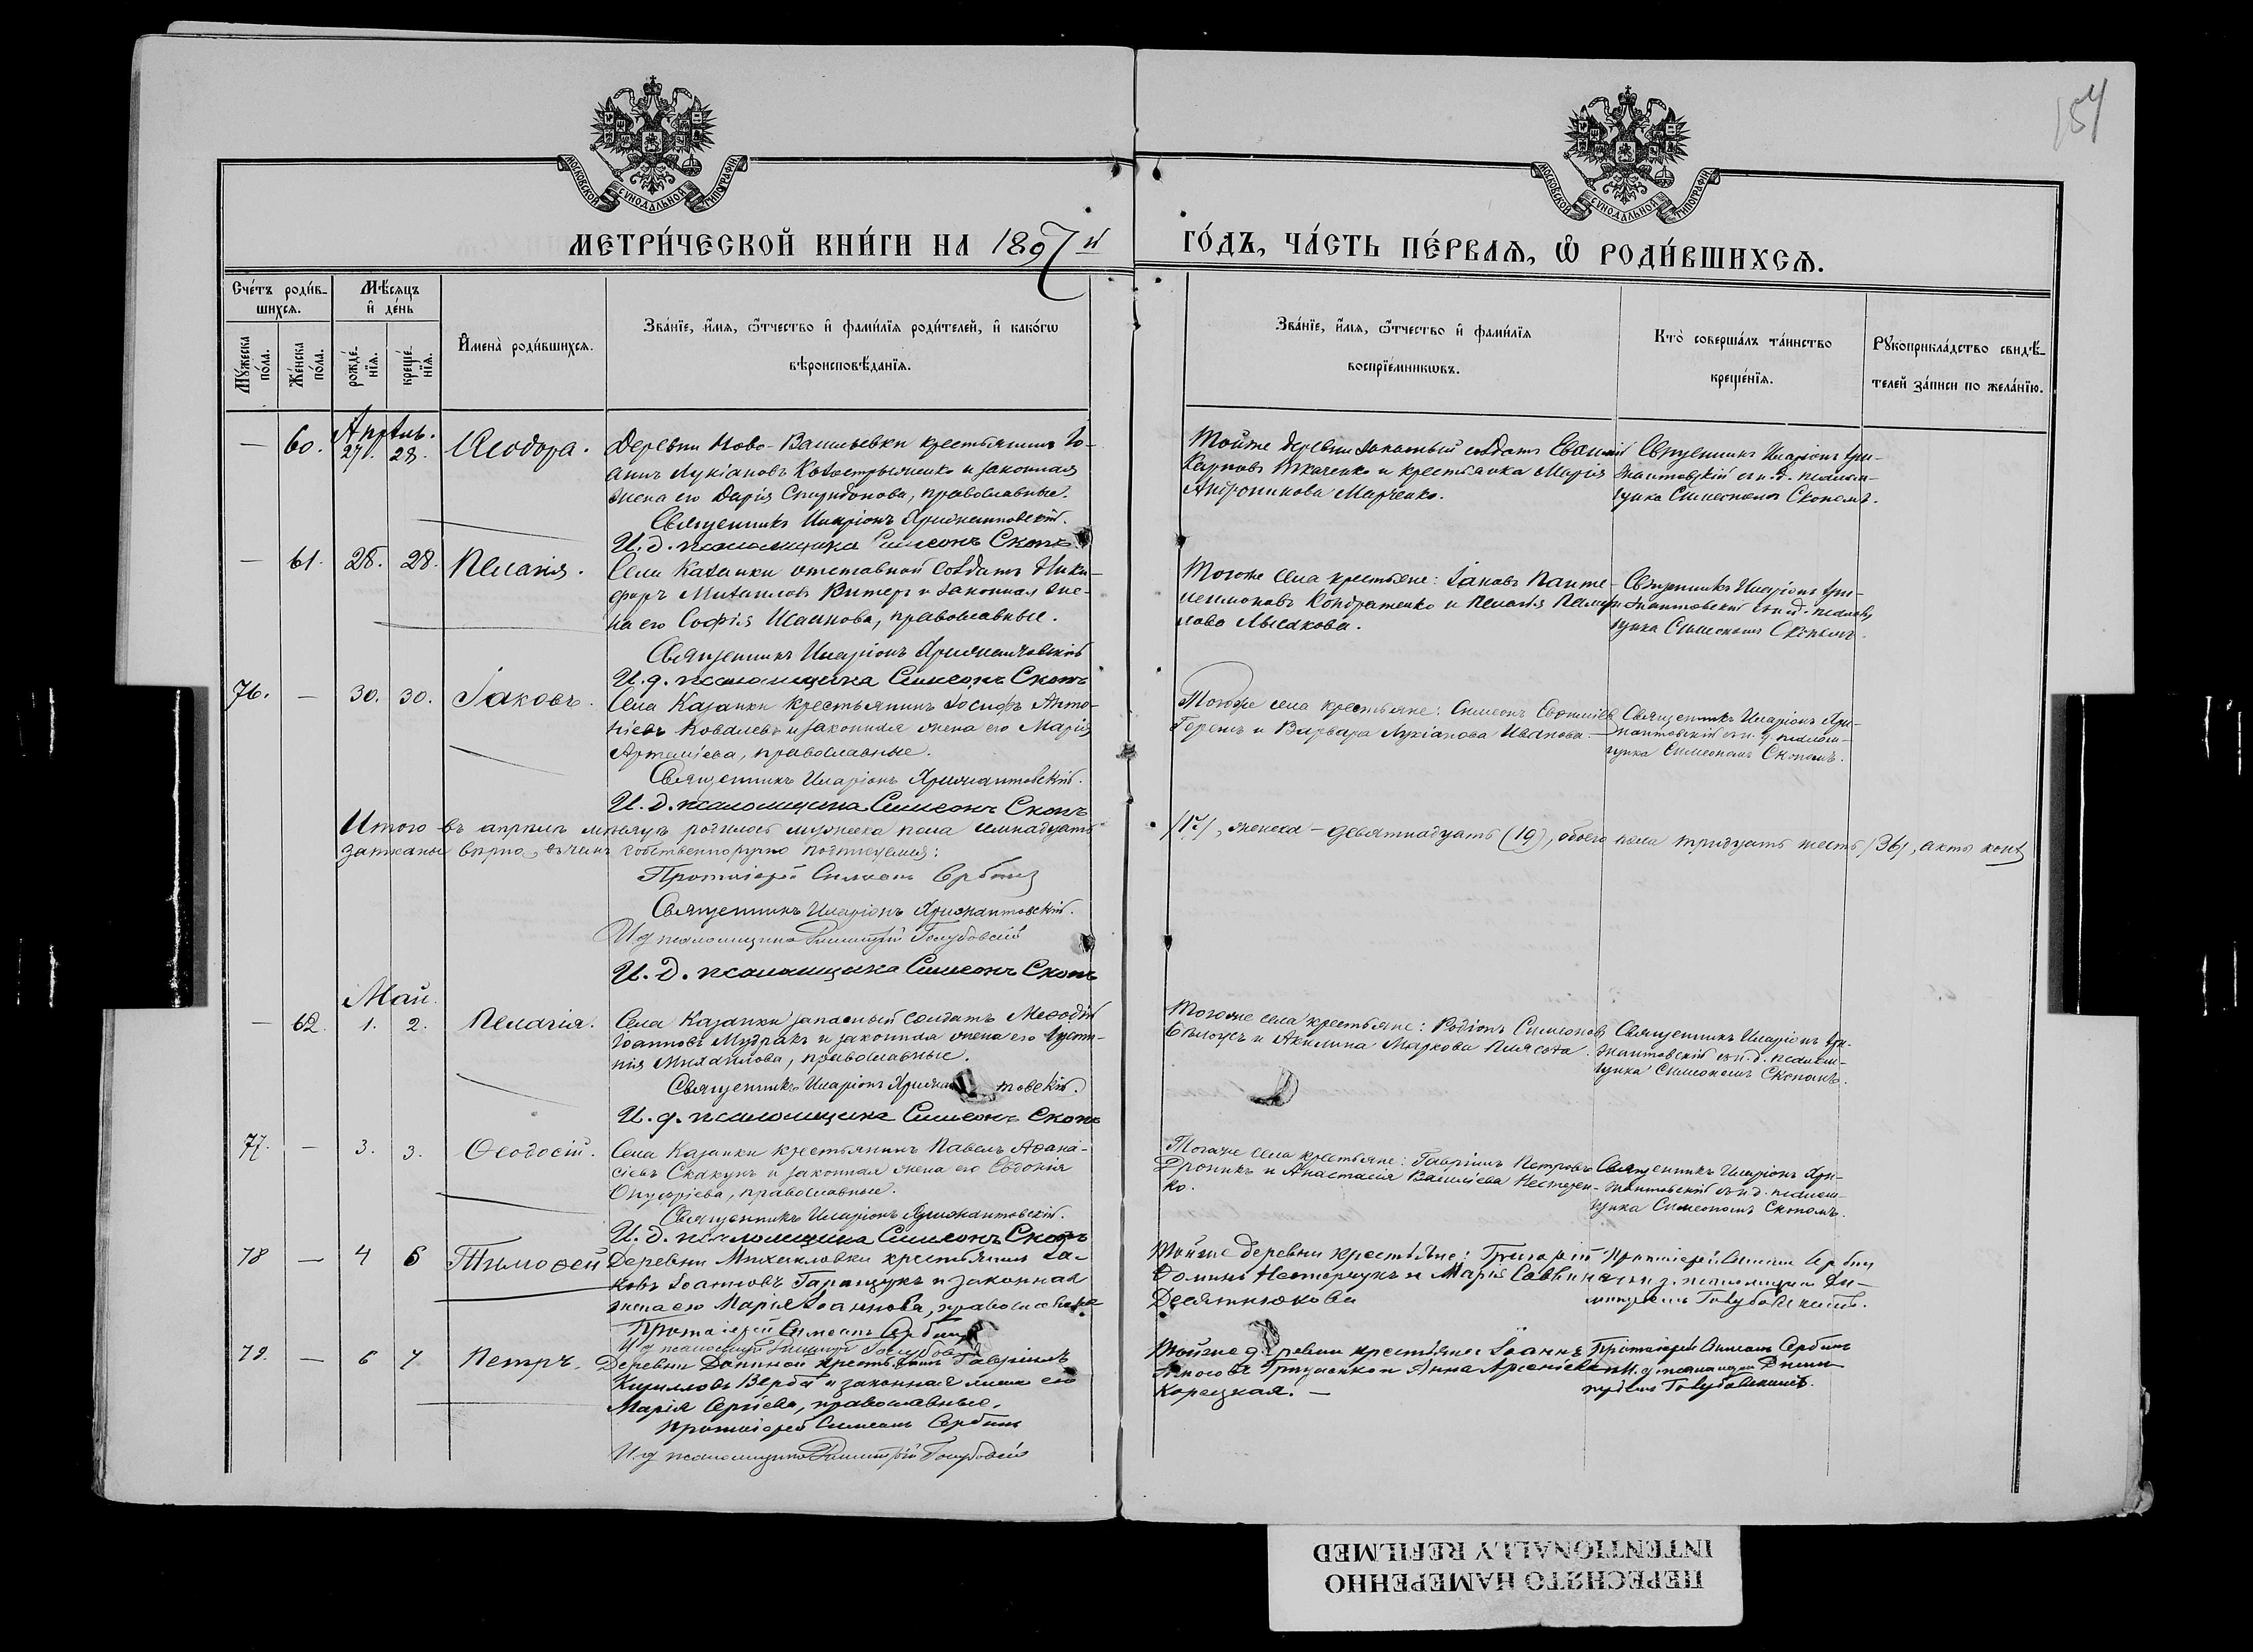 154
МОСКОВСКОЙ СУНОДАЛЬНОЙ ТИПОГРАФІИ
МОСКОВСКОЙ СУНОДАЛЬНОЙ ТИПОГРАФІИ
МЕТРИ́ЧЕСКОЙ КНИ́ГИ НА 1897 й
ГО́ДЪ, ЧА́СТЬ ПЕ́РВАѦ, Ѡ҆ РОДИ́ВШИХСѦ.
Сче́тъ роди́в-
шихсѧ.
Мѣ́сѧцъ
и҆ де́нь
Му́жеска
по́ла.
Же́нска
по́ла.
рожде́-
нїѧ.
креще́-
нїѧ.
И҆мена̀ роди́вшихсѧ.
Зва́нїе, и҆́мѧ, ѻ҆́тчество и҆ фами́лїѧ роди́телей, и҆ како́гѡ
вѣроисповѣ́данїѧ.
Зва́нїе, и҆́мѧ, ѻ҆́тчество и҆ фами́лїѧ
воспрїе́мникѡвъ.
Кто̀ соверша́лъ та́инство
креще́нїѧ.
Рꙋкоприкла́дство свидѣ́-
телей за́писи по жела́нїю.
Апрѣль.
— 60. 27. 28. Ѳеодора. Деревни Ново-Васильевки крестьянинъ Іо-
аннъ Лукіановъ и законная
жена его Дарія Спиридонова, православные.
Священникъ Иларіонъ Хрисанѳовскій.
И. д. псаломщика Симеонъ Скопъ
Тойже деревни запасный солдатъ
Карповъ Ткаченко и крестьянка Марія
Андроникова Марченко.
Священникъ Иларіонъ Хри-
санѳовскій съ и. д. псалом-
щика Симеономъ Скопомъ.
— 61. 28. 28. Пелагія. Села Казанки отставной солдатъ Ники-
форъ Михаиловъ и законная же-
на его Софія Исаакова, православные.
Священникъ Иларіонъ Хрисанѳовскій
И. д. псаломщика Симеонъ Скопъ
Тогоже села крестьяне: Іаковъ Панте-
леимоновъ Кондратенко и Пелагія
лова Лысакова.
Священникъ Иларіонъ Хри-
санѳовскій съ и. д. псалом-
щика Симеономъ Скопомъ.
76. — 30. 30. Іаковъ. Села Казанки крестьянинъ Іосифъ Анто-
ніевъ Ковалевъ и законная жена его Марія
Артеміева, православные.
Священникъ Иларіонъ Хрисанѳовскій.
И. д. псаломщика Симеонъ Скопъ
Тогоже села крестьяне: Симеонъ Евѳиміевъ
и Варвара Лукіанова Иванова.
Священникъ Иларіонъ Хри-
санѳовскій съ и. д. псалом-
щика Симеономъ Скопомъ.
Итого въ апрѣлѣ мѣсяцѣ родилось мужеска пола семнадцать
/17/, женска – девятнадцать (19), обоего пола тридцать шесть /36/, акты коихъ
записаны вѣрно, въ чемъ собственноручно подписуемся:
Протоіерей Симеонъ Сербинъ
Священникъ Иларіонъ Хрисанѳовскій.
И д псаломщика Димитрій Голубовскій
И. д. псаломщика Симеонъ Скопъ
Май.
— 62. 1. 2. Пелагія. Села Казанки запасный солдатъ Меѳодій
Іоанновъ Мудракъ и законная жена его Іусти-
нія Михаилова, православные.
Священникъ Иларіонъ Хрисанѳовскій.
И. д. псаломщика Симеонъ Скопъ
Тогоже села крестьяне: Родіонъ Симеоновъ
Бѣлоусъ и Акилина Маркова
Священникъ Иларіонъ Хри-
санѳовскій съ и. д. псалом-
щика Симеономъ Скопомъ.
77. — 3. 3. Ѳеодосій. Села Казанки крестьянинъ Павелъ Аѳана-
сіевъ Скакунъ и законная жена его Евдокія
Онуфріева, православные.
Священникъ Иларіонъ Хрисанѳовскій.
И. д. псаломщика Симеонъ Скопъ
Тогоже села крестьяне: Гавріилъ Петровъ
Дроникъ и Анастасія Василіева Нестерен-
ко.
Священникъ Иларіонъ Хри-
санѳовскій съ и. д. псалом-
щика Симеономъ Скопомъ.
78 — 4 6 Тимоѳей Деревни Михаиловки крестьянинъ Іа-
ковъ Іоанновъ Гаранщукъ и законная
жена его Марія Іоаннова, православные
Протоіерей Симеонъ Сербинъ
И д псаломщика Димитрій Голубовскій
Тойже деревни крестьяне: Григорій
Нестерчукъ и Марія Саввина
Десятнюкова
Протоіерей Симеонъ Сербинъ
съ и. д. псаломщика Ди-
митріемъ Голубовскимъ.
79. — 6 7 Петръ. Деревни крестьянинъ Гавріилъ
Кирилловъ Верба и законная жена его
Марія Сергіева, православные.
Протоіерей Симеонъ Сербинъ
И д псаломщика Димитрій Голубовскій
Тойже деревни крестьяне Іоаннъ
и Анна Арсеніева
Корецкая. —
Протоіерей Симеонъ Сербинъ
съ И. д. псаломщика Дими-
тріемъ Голубовскимъ.
ПЕРЕСНЯТО НАМЕРЕННО
INTENTIONALLY REFILMED